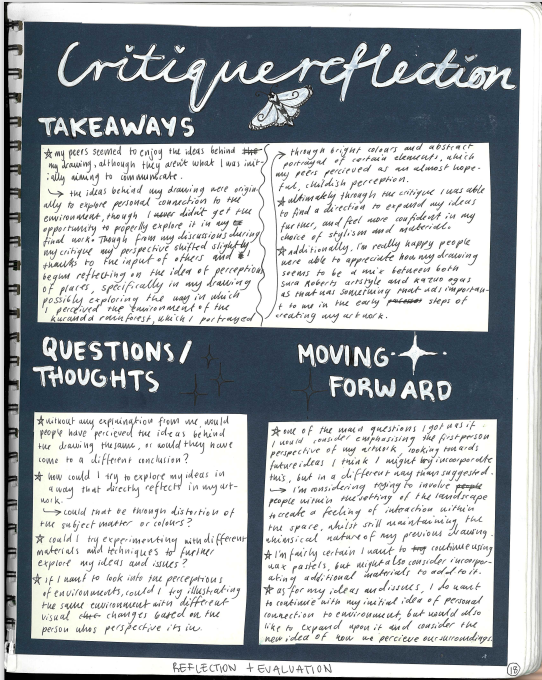 Critique reflection
TAKEAWAYS
☆ my peers seemed to enjoy the ideas behind the
my drawing, although they arent what I was init-
ially aiming to communicate.
↳ the ideas behind my drawing were origin-
ally to explore personal connection to the
environment, though I never didn't get the
opportunity to properly explore it in my
final work. Though from my discussions during
my critique my perspective shifted slightly
thanks to the input of others and I
begun reflecting on the idea of perception
of places, specifically in my drawing
possibly exploring the way in which
I perceived the environment of the
kuranda rainforest, which I portrayed
→ through bright colours and abstract
portrayal of certain elements, which
my peers percieved as an almost hope-
ful, childish perception.
☆ ultimately through the critique I was able
to find a direction to expand my ideas
further, and feel more confident in my
choice of stylism and material.
☆ additionally, I'm really happy people
were able to appreciate how my drawing
seems to be a mix between both
Sara Roberts artstyle and kazuo ogas
as that was something that was importan-
t to me in the early steps of
creating my artwork.
QUESTIONS/
THOUGHTS
☆ without any explaination from me, would
people have percieved the ideas behind
the drawing thesame, or would they have
come to a different conclusion?
☆ how could I try to explore my ideas in
a way that directly reflects in my art-
work.
↳ could that be through distortion of
the subject matter or colours?
☆ could I try experimenting with different
materials and techniques to further
explore my ideas and issues?
☆ if I want to look into the perceptions
of environments, could I try illustrating
the same environment with different
visual changes based on the
person whos perspective its in.
MOVING
FORWARD
☆ one of the main questions I got was if
I would consider emphasising the first person
perspective of my artwork, looking towards
future ideas I think I might try incorporate
this, but in a different way than suggested.
↳ I'm considering trying to involve people
people within the setting of the landscape
to create a feeling of interaction within
the space, whilst still maintaining the
whimsical nature of my previous drawing.
☆ I'm fairly certain I want to try continue using
wax pastels, but might also consider incorpor-
ating additional materials to add to it.
☆ as for my ideas and issues, I do want
to continue with my initial idea of personal
connection to environment, but would also
like to expand upon it and consider the
new idea of how we percieve our surroundings.
REFLECTION + EVALUATION
18